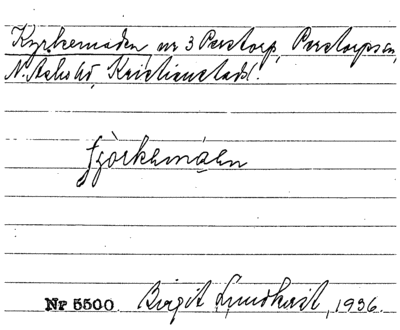 Kyrkemaden nr 3 Perstorp, Perstorps sn,
N. Åsbo hd, Kristianstads l.
Nr 5500. Birgit Lundkvist, 1936.